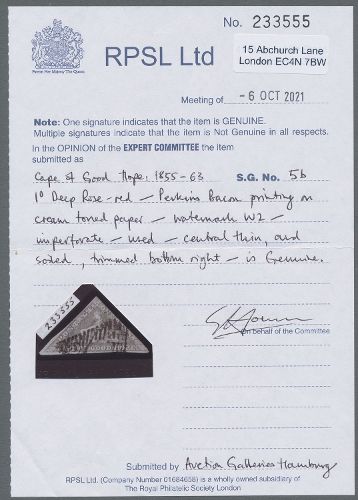 No. 233555
RPSL Ltd
15 Abchurch Lane
London EC4N 7BW
Meeting of - 6 OCT 2021
Note: One signature indicates that the item is GENUINE.
Multiple signatures indicate that the item is Not Genuine in all respects.
In the OPINION of the EXPERT COMMITTEE the item
submitted as
Cape of Good Hope: 1855-63 S.G. No. 5b
1d Deep Rose-red - Perkins Bacon printing on
cream toned paper - watermark W2 -
imperforate - used - central thin, and
soiled, trimmed bottom right - is Genuine.
233555
On behalf of the Committee
Submitted by Auction Galleries Hamburg
RPSL Ltd. (Company Number 01684658) is a wholly owned subsidiary of
The Royal Philatelic Society London